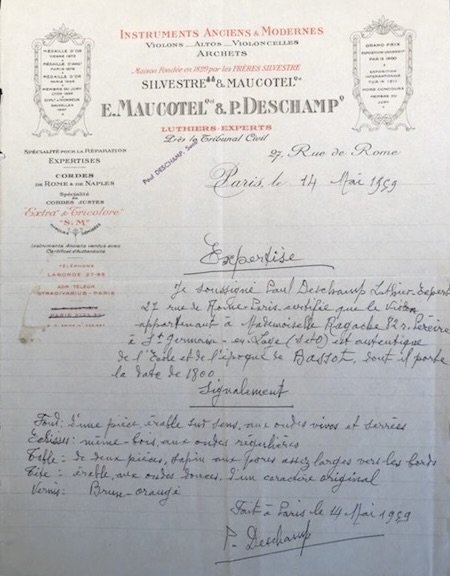 INSTRUMENTS ANCIENS & MODERNES
VIOLONS _ ALTOS _ VIOLONCELLES
ARCHETS
Maison Fondée en 1829 par les FRÈRES SILVESTRE
SILVESTRE & MAUCOTEL
E. MAUCOTEL & P. DESCHAMP
LUTHIERS-EXPERTS
Près le Tribunal Civil
MÉDAILLE D'OR
MÉDAILLE D'OR
GRAND PRIX
EXPOSITION UNIVERSELLE
PARIS 1900
EXPOSITION
INTERNATIONALE
HORS CONCOURS
MEMBRE DU
JURY
Paul DESCHAMP,
27, Rue de Rome
Paris, le 14 Mai 1959
SPÉCIALITÉ POUR LA RÉPARATION
EXPERTISES
CORDES
DE ROME & DE NAPLES
Spécialité
DE CORDES JUSTES
"Extra" & "Tricolore"
"S.M"
Instruments Anciens vendus avec
Certificat d'Authenticité
TÉLÉPHONE
LABORDE 27-85
ADR TÉLÉGR
STRADIVARIUS-PARIS
Expertise
Je soussigné Paul Deschamp Luthier-Expert
27 rue de Rome-Paris certifie que le Violon
appartenant à Mademoiselle Ragache 82 r. Pereire
à St Germain-en-Laye (S&O) est authentique
de l'Ecole et de l'époque de BASSOT, dont il porte
la date de 1800
Signalement
Fond: d'une pièce, érable sur sens, aux ondes vives et serrées
Eclisses: même-bois, aux ondes régulières
Table: de deux pièces, sapin aux pores assez larges vers les bords
Tête: érable, aux ondes douces, d'un caractère original
Vernis: Brun-orangé
Fait à Paris le 14 Mai 1959
P. Deschamp